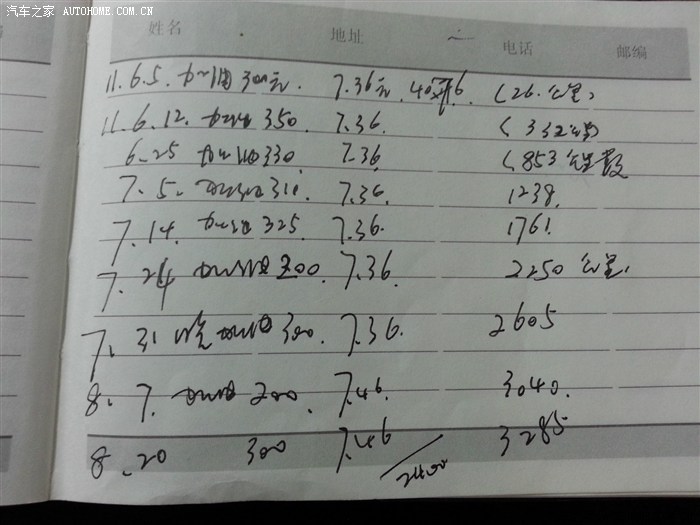 汽车之家 AUTOHOME.COM.CN
姓名 地址 电话 邮编
11.6.5. 加油300元. 7.36元. (26.公里)
11.6.12. 加油350 7.36. (332公里)
6.25 加油330 7.36 (853公里数
7.5. 加油310 7.36. 1238.
7.14. 加油325 7.36. 1761.
7.24 加油300. 7.36. 2250公里.
7.31晚加油300. 7.36. 2605
8.7. 加油200. 7.46. 3040.
8.20 300 7.46 3285
2400